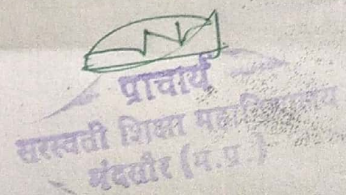 प्राचार्य
सरस्वती शिक्षा महाविद्यालय
मंदसौर (म.प्र.)